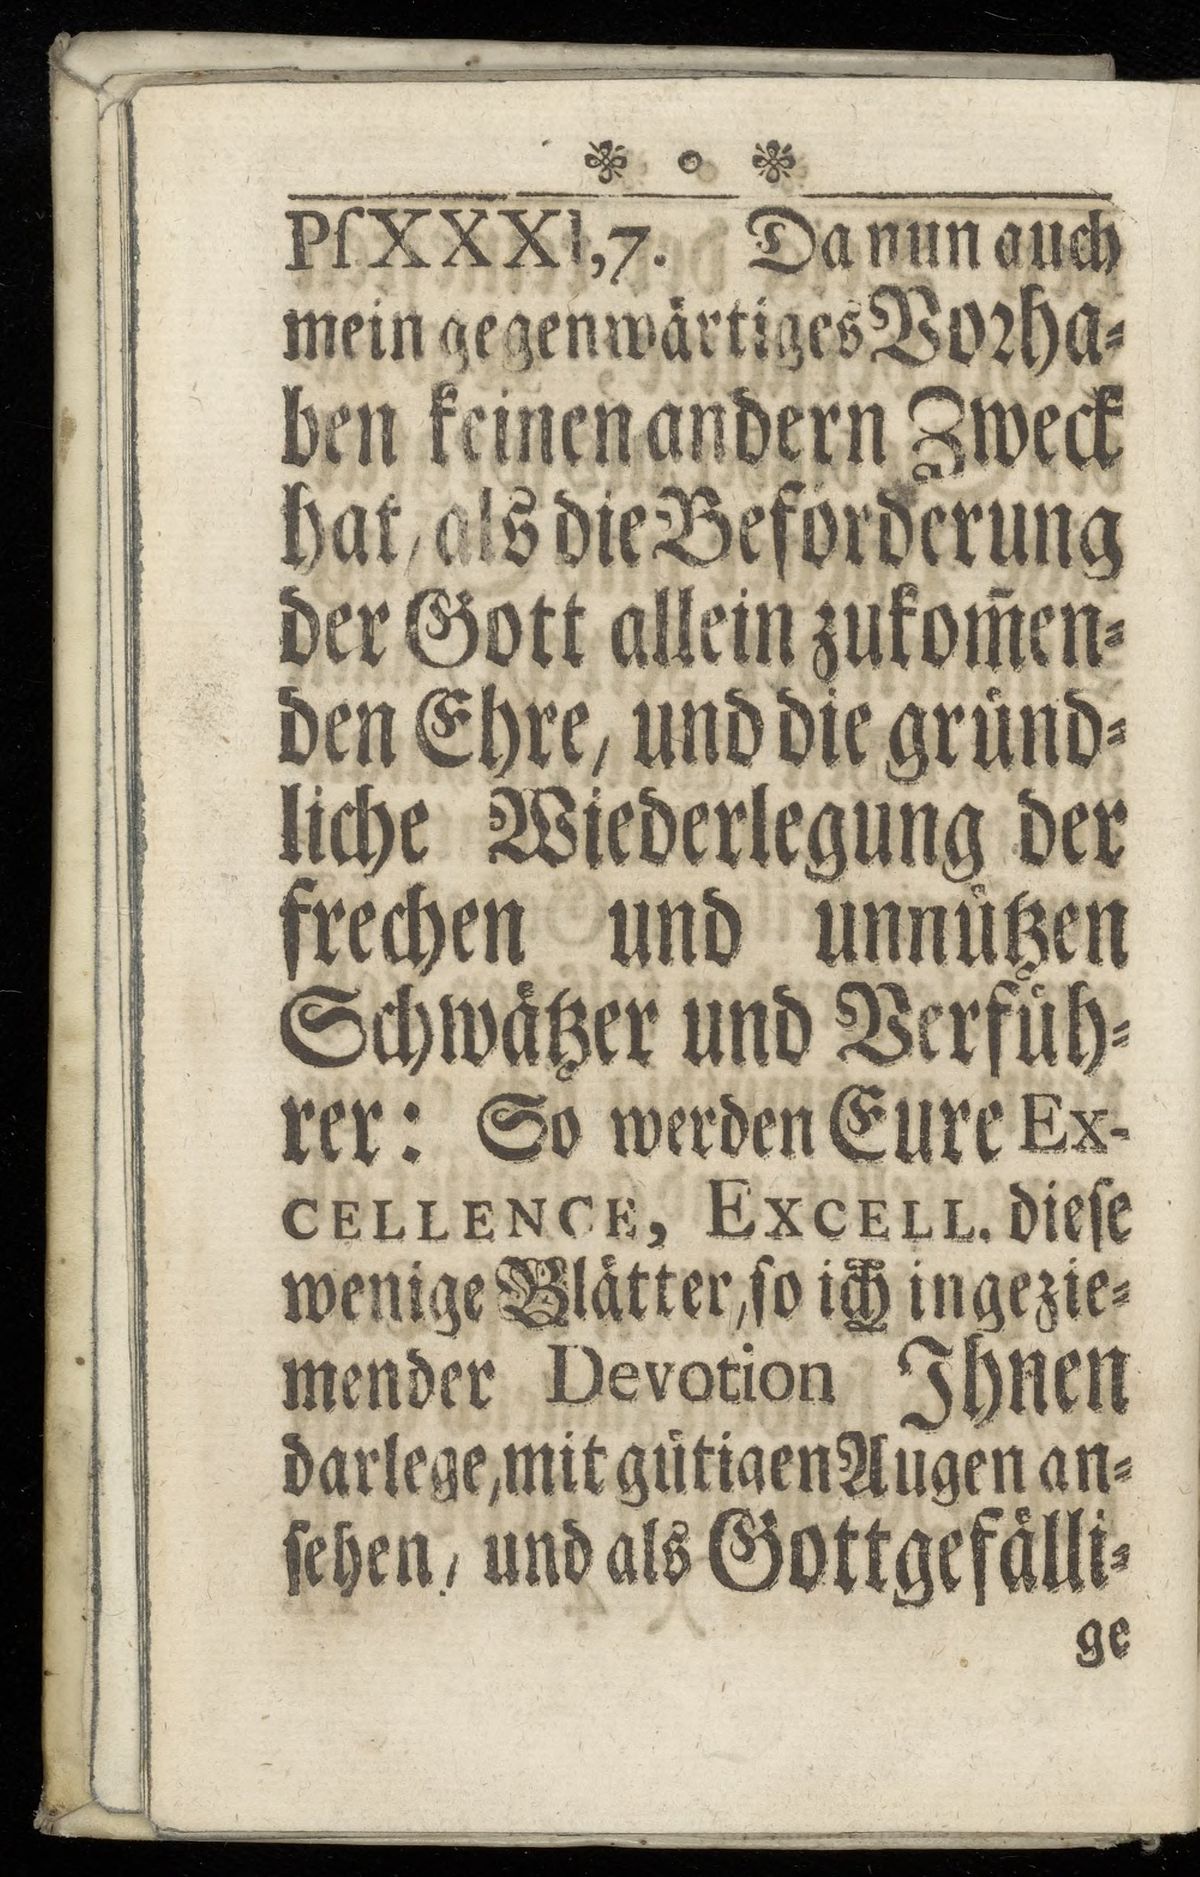 ❃ o ❃
Pſ XXXI, 7. Da nun auch
mein gegenwårtiges Vorha⸗
ben keinen andern Zweck
hat, als die Befoͤrderung
der Gott allein zukom̃en⸗
den Ehre, und die gruͤnd⸗
liche Wiederlegung der
frechen und unnuͤtzen
Schwaͤtzer und Verfuͤh⸗
rer: So werden Eure Ex-
CELLENCE, EXCELL. dieſe
wenige Blaͤtter, ſo ich in gezie⸗
mender Devotion Ihnen
darlege, mit guͤtigen Augen an⸗
ſehen, und als Gottgefaͤlli⸗
ge